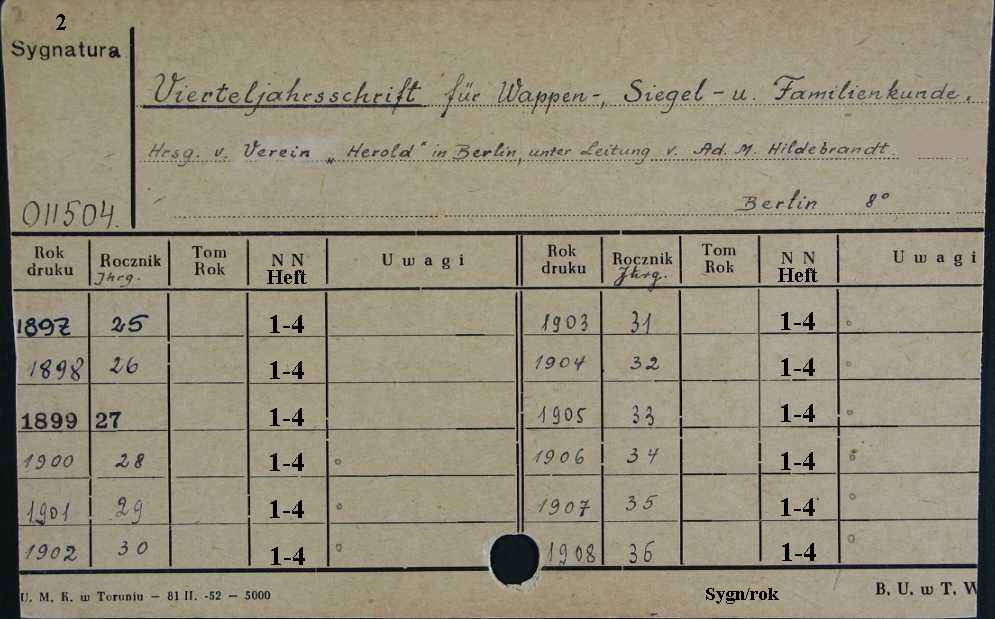 2
Sygnatura
Vierteljahrsschrift für Wappen-, Siegel- u. Familienkunde.
Hrsg. v. Verein „Herold“ in Berlin, unter Leitung v. Ad. M. Hildebrandt.
011504.
Berlin 8°
Rok druku Rocznik Jhrg. Tom Rok N N Heft Uwagi Rok druku Rocznik Jhrg. Tom Rok N N Heft Uwagi
1897 25 1-4 1903 31 1-4 °
1898 26 1-4 1904 32 1-4 °
1899 27 1-4 1905 33 1-4 °
1900 28 1-4 ° 1906 34 1-4 °
1901 29 1-4 ° 1907 35 1-4 °
1902 30 1-4 ° 1908 36 1-4 °
U. M. K. w Toruniu — 81 II. -52 — 5000 Sygn/rok B. U. w T. W